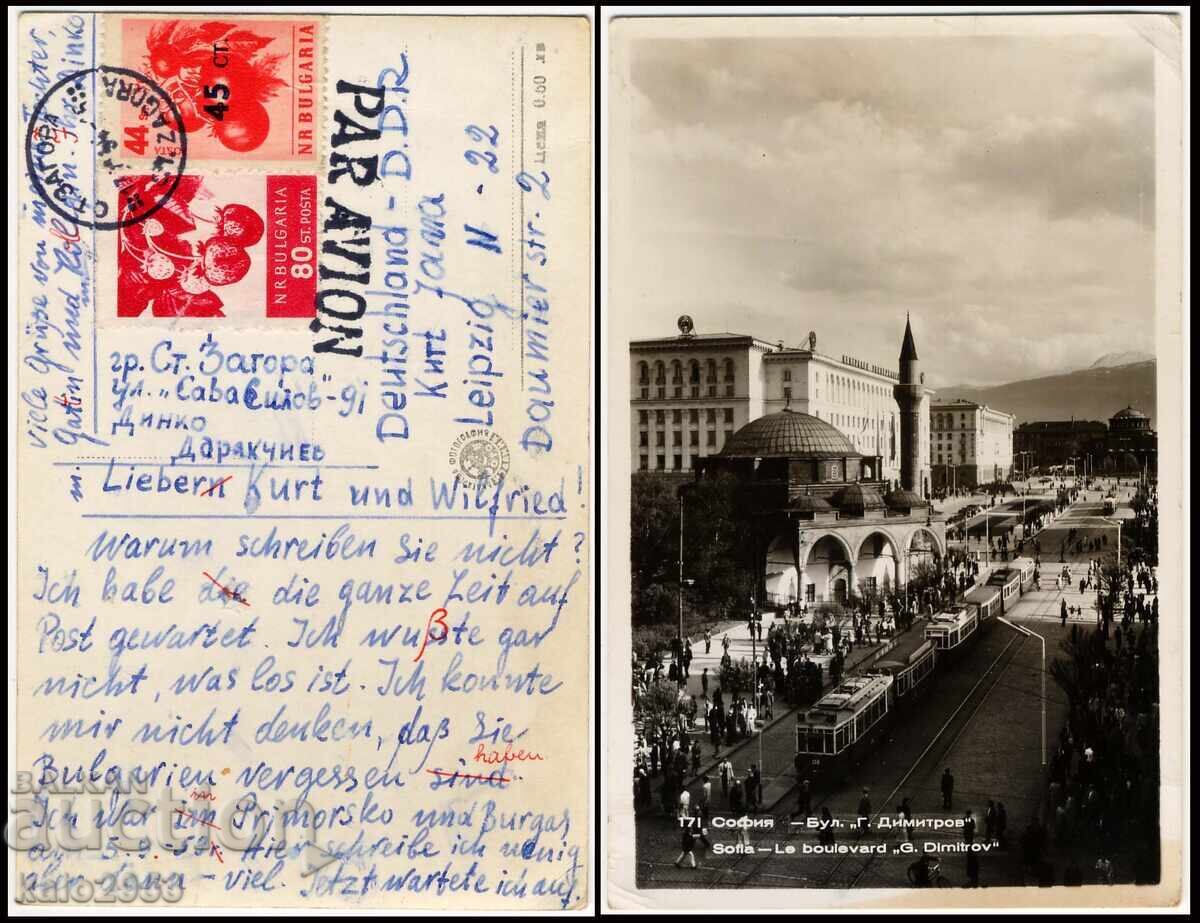 Viele Grüße von meine Tochter,
Gattin und Kollegen. Ihr Dinko
44 ст.
45 СТ.
NR BULGARIA
NR BULGARIA
80 ST. POSTA
ST. ZAGORA
PAR AVION
Цена 0.60 лв
Deutschland - D.D.R
Kurt Jana
Leipzig N - 22
Daumier str. 2
гр. Ст. Загора
ул. „Сава Силов"-91
Динко
Даракчиев
Liebern Kurt und Wilfried!
Warum schreiben Sie nicht?
Ich habe die die ganze Zeit auf
Post gewartet. Ich wußte gar
nicht, was los ist. Ich konnte
mir nicht denken, daß Sie
haben
Bulgarien vergessen sind.
in
Ich war im Primorsko und Burgas
Hier schreibe ich wenig
aber dann - viel. Jetzt wartete ich auf.
BALKAN
kalo2988
171 София — Бул. „Г. Димитров"
Sofia — Le boulevard „G. Dimitrov"